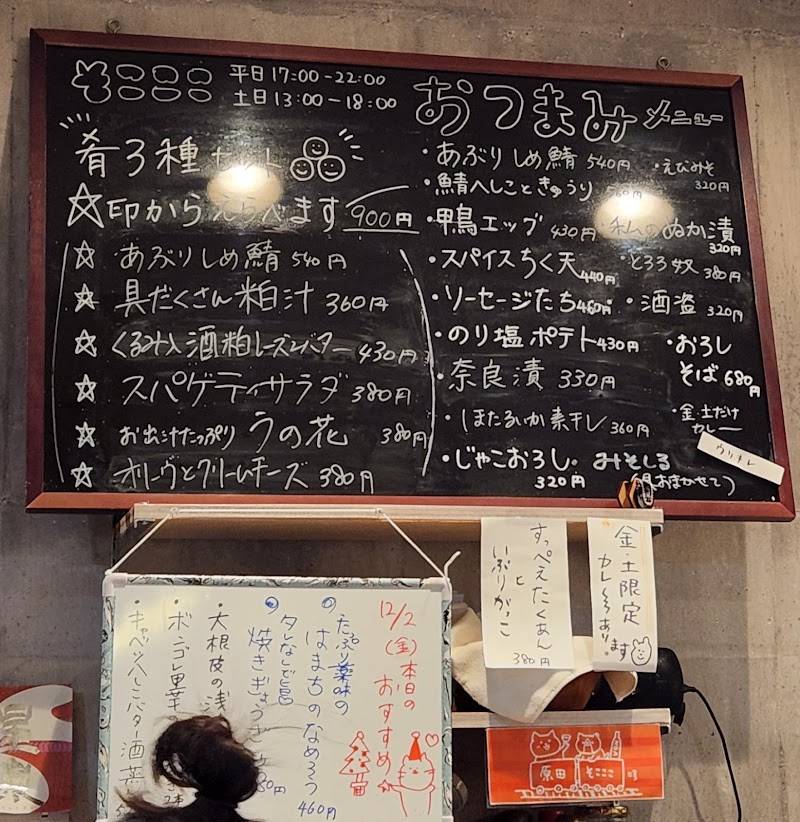 そこここ
平日17:00-22:00
土日13:00-18:00
肴3種セット
☆印からえらべます 900円
☆ あぶりしめ鯖 540円
☆ 具だくさん粕汁 360円
☆ くるみ入酒粕レーズンバター 430円
☆ スパゲティサラダ 380円
☆ お出汁たっぷりうの花 380円
☆ オリーヴとクリームチーズ 380円
おつまみメニュー
・あぶりしめ鯖 540円
・えびみそ 320円
・鯖へしこときゅうり
・鴨エッグ 430円
・私のぬか漬 320円
・スパイスちく天 440円
・とろろ奴 380円
・ソーセージたち 460円
・酒盗 320円
・のり塩ポテト 430円
・おろしそば 680円
・奈良漬 330円
・ほたるいか素干し 360円
・金・土だけカレー
ウリキレ
・じゃこおろし 320円
・みそしる
おまかせで)
すっぺえたくあん
と
いぶりがっこ
380円
金・土限定
カレーそうあります
12/2(金)本日の
おすすめ
たっぷり薬味の
はまちのなめろう
460円
タレなしで旨
焼きぎょうざ
・大根皮の浅
・ボンゴレ里芋
・キャベツへしこバター酒蒸
原田
そこここ